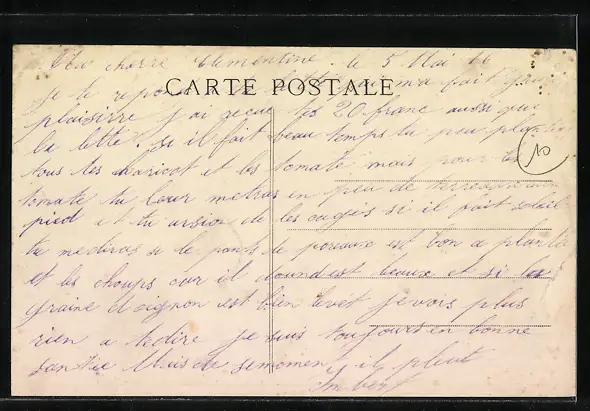 Ma cherre Clementine. le 5 Mai 16
CARTE POSTALE
je te repond a ta lettre qui ma fait gran
plaisirre j'ai recue les 20 franc aussi que
la lette. si il fait beau temps tu peu planter
tous les aricot et les tomate mais pour les
10
tomate tu leur metras en peu de terreau
pied et tu arsion de les ougés si il fait soleil
tu me diras si le pants de poreaux est bon a planta
et les choups car il doundest beaux et si les
graine d oignon est bien levet je vois plus
rien a te dire je suis toujours en bonne
santée Mais de se momen il pleut
Imbert